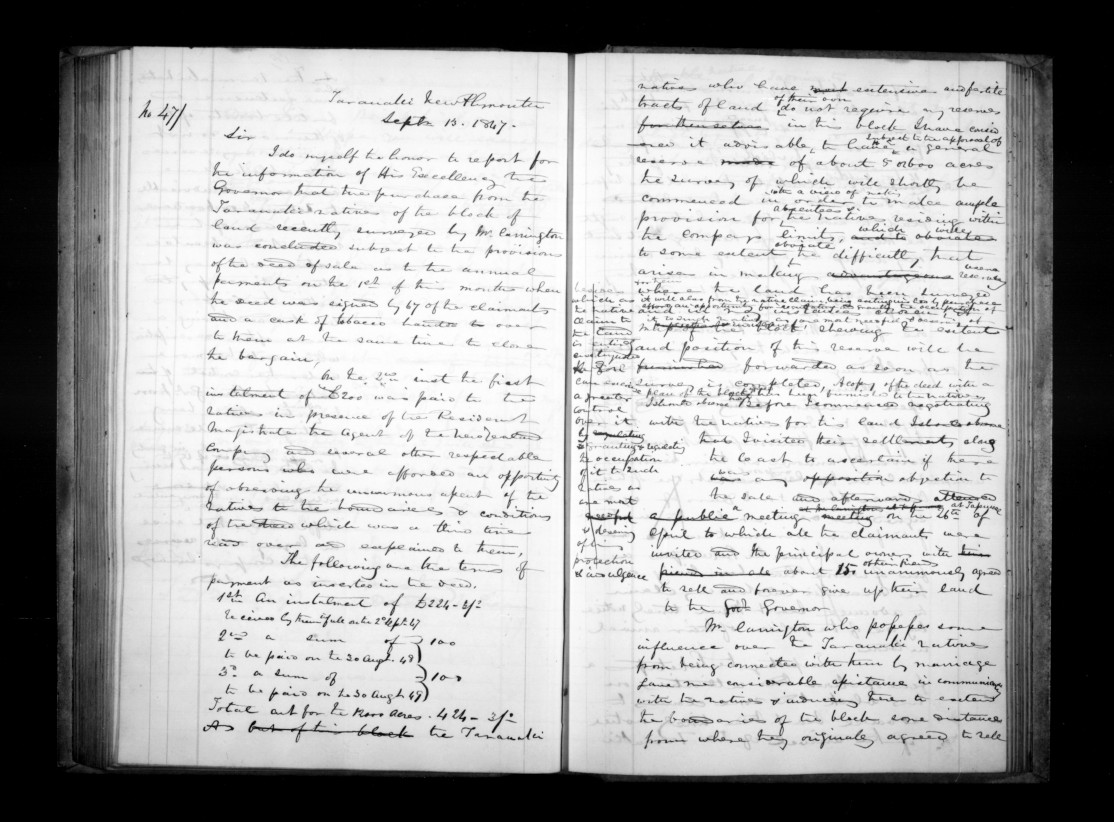 Taranaki New Plymouth
No 47/
Septr 13. 1847.
Sir
I do myself the honor to report for
the information of His Excellency the
Governor that the purchase from the
Taranaki natives of the block of
land recently surveyed by Mr. Carrington
was concluded subject to the provisions
of the deed of sale as to the annual
payments on the 1st of this month when
the deed was signed by 67 of the claimants
and a cask of tobacco handed over
to them at the same time to close
the bargain,
On the 2nd inst the first
instalment of £200 was paid to the
natives in presence of the Resident
Magistrate the agent of the New Zealand
Company and several other respectable
persons who were afforded an opportunity
of observing the unanimous assent of the
natives to the boundaries & conditions
of the deed which was a this time
read over and explained to them,
The following are the terms of
payment as inserted in the deed.
1st An instalment of £224-3/-
Received by them in full on the 2d Sept. 47
2nd a sum of } 100
to be paid on the 30 Augt. 48
3d a sum of } 100
to be paid on the 30 Augt 49
Total amt for the acres. 424-3/-
As but of this block the Taranaki
natives who have most extensive and fertile
tracts of land of their own do not require any reserves
for themselves in this block I have
it advisable, subject to the approval of
to have a general
reserve made of about acres
the survey of which will shortly be
commenced in order with a view of
to make ample
provision for absentees &
the natives residing within
the compass limits, which will
and to obviate
to some extent obviate the difficulty, that
arises in making
where the land has been surveyed
which as
the native
claim to
the land
is entirely
extinguished
the Govt
can exercise
a greater
control
over it
by regulating
& granting & regulating
the occupation
of it to such
natives as
are most
deserving
of his
protection
& indulgence
of the block showing the extent
and position of this reserve will be
furnished forwarded as soon as the
survey is completed, A copy of the deed with a
plan of the block has been furnished to the natives
Before I commenced negotiating
with the natives for this land
that I visited their settlements along
the coast to ascertain if there
was any opposition objection to
the sale and afterwards attended
at Tapuae
a public meeting meeting on the 26th of
April to which all the claimants were
invited and the principal owners with
others
in all about 150 unanimously agreed
to sell and forever give up their land
to the Govt Governor
Mr. Carrington who possesses some
influence over the Taranaki natives
from being connected with them by marriage
gave me considerable assistance in communicating
with the natives & inducing them to extend
the boundaries of the block some distance
from where they originally agreed to sell